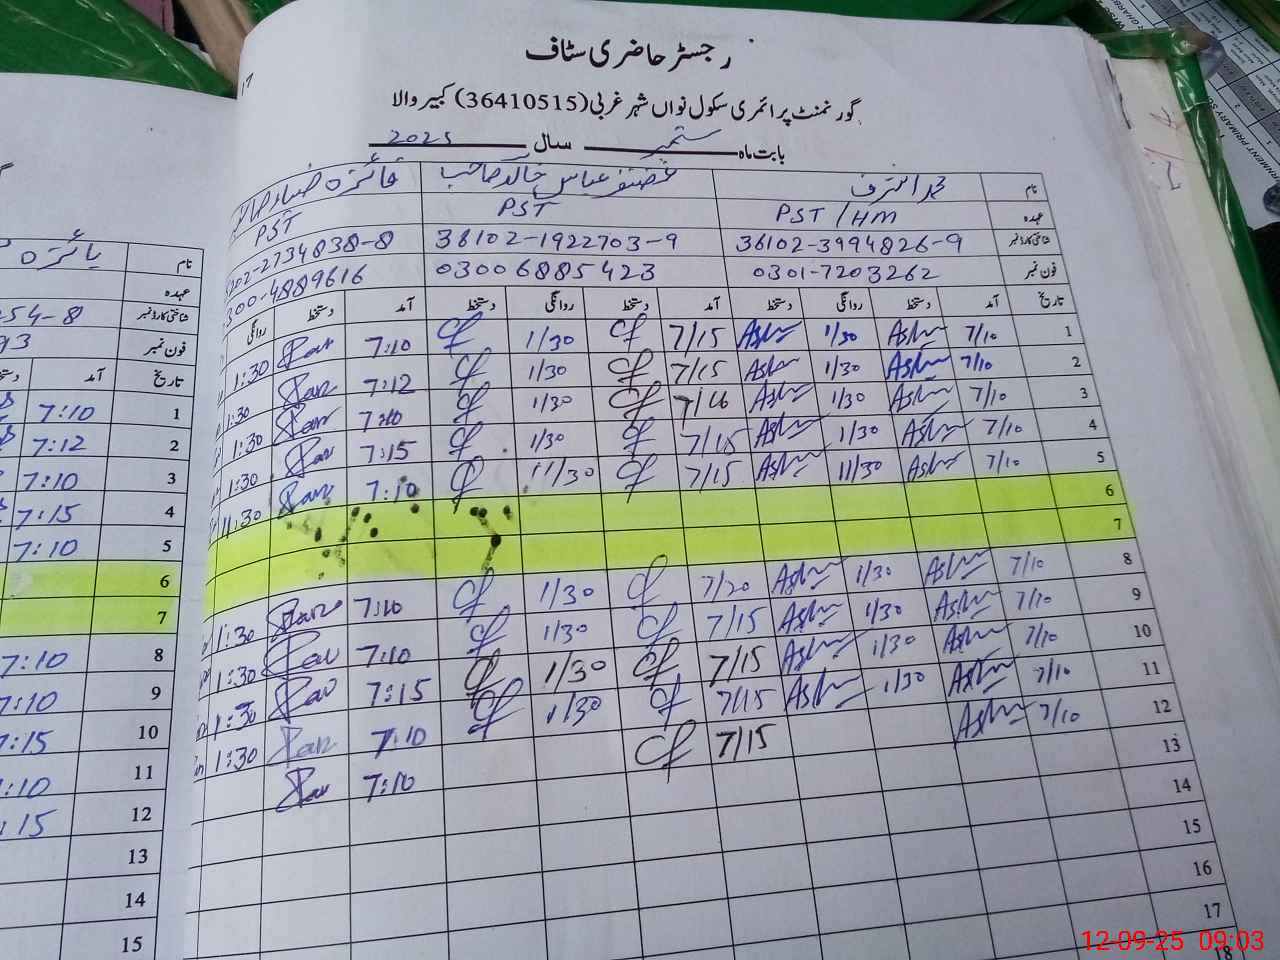 رجسٹر حاضری سٹاف
گورنمنٹ پرائمری سکول نواں شہر غربی (36410515) کبیر والا
بابت ماہ ستمبر سال 2025
نام محمد اشرف غضنفر عباس خالد صاحب فائزہ ضیاء
عہدہ PST/HM PST PST
شناختی کارڈ نمبر 36102-3994826-9 36102-1922703-9 202-2734838-8
فون نمبر 0301-7203262 03006885423 300-4889616
تاریخ آمد دستخط روانگی دستخط آمد دستخط روانگی دستخط آمد دستخط روانگی
1 7/10 Ash 1/30 Ash 7/15 cf 1/30 cf 7:10 1:30
2 7/10 Ash 1/30 Ash 7/15 cf 1/30 cf 7:12 1:30
3 7/10 Ash 1/30 Ash 7/16 cf 1/30 cf 7:10 1:30
4 7/10 Ash 1/30 Ash 7/15 cf 1/30 cf 7:15 1:30
5 7/10 Ash 11/30 Ash 7/15 cf 11/30 cf 7:10 11:30
6
7
8 7/10 Ash 1/30 Ash 7/20 cf 1/30 cf 7:10 1:30
9 7/10 Ash 1/30 Ash 7/15 cf 1/30 cf 7:10 1:30
10 7/10 Ash 1/30 Ash 7/15 cf 1/30 cf 7:15 1:30
11 7/10 Ash 1/30 Ash 7/15 cf 1/30 cf 7:10 1:30
12 7/10 Ash 7/15 cf 7:10
13
14
15
16
17
18
نام فائزہ
عہدہ
شناختی کارڈ نمبر 54-8
فون نمبر 93
تاریخ آمد
1 7:10
2 7:12
3 7:10
4 7:15
5 7:10
6
7
8 7:10
9 7:10
10 7:15
11 7:10
12 7:15
13
14
15
12-09-25 09:03